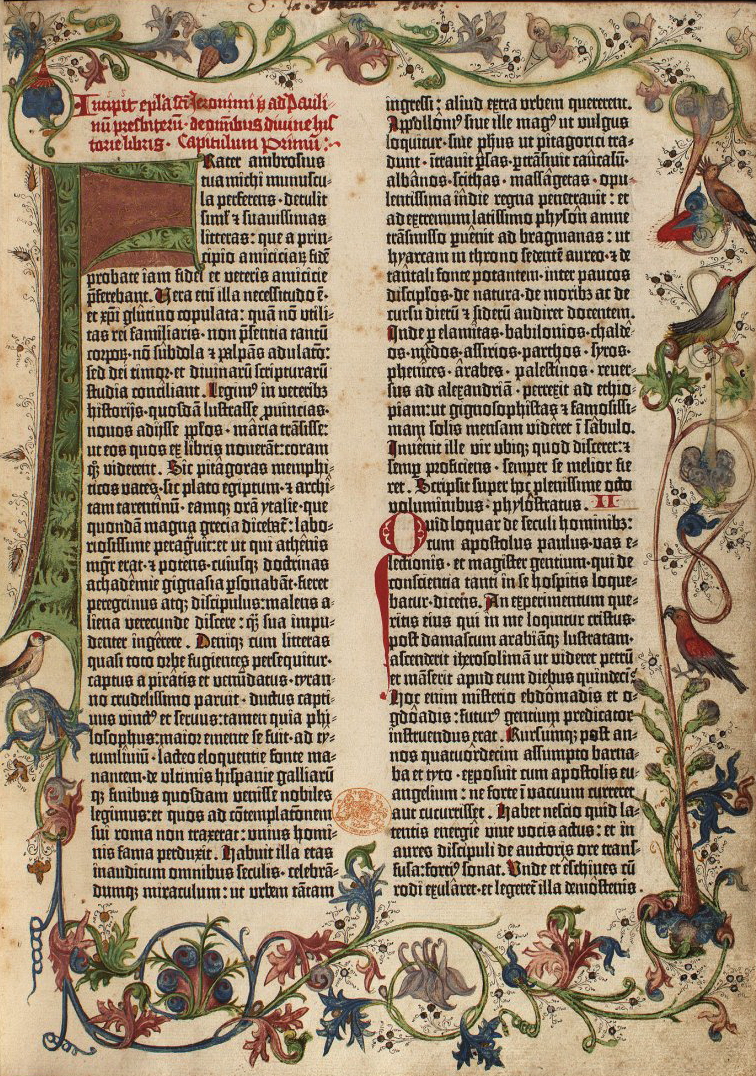 Incipit epl̄a sc̄i Jeronimi p̄ ad Pauli⸗
nū presbiterū · de om̄ibus diuine his
torie libris · Capitulum Primū :·
Frater ambrosius
tua michi munuscu⸗
la perferens · detulit
siml' ⁊ suauissimas
litteras : que a prin⸗
cipio amiciciaꝝ fidē
probate iam fidei et veteris amicicie
p̄ferebant. Vera em̄ illa necessitudo ē·
et xp̄i glutino copulata : quā nō vtili⸗
tas rei familiaris · non p̄sentia tantū
corpoꝝ · nō subdola ⁊ palpās adulato :
sed dei timor · et diuinarū scripturarū
studia conciliant. Legimꝰ in veteribꝫ
historijs · quosdā lustrasse ꝓuincias ·
nouos adijsse pp̄los · maria trāsisse :
ut eos quos ex libris nouerāt : coram
qꝫ viderent. Sic pitagoras memphi⸗
ticos vates · sic plato egiptum · ⁊ archi⸗
tam tarentinū · eamqꝫ orā ytalie · que
quondā magna grecia dicebat̄ : labo⸗
riosissime peragͣuit : et ut qui athenis
mgr̄ erat · ⁊ potens · cuiusqꝫ doctrinas
achademie gignasia ꝑsonabāt · fieret
peregrinus atqꝫ discipulus : malens a⸗
liena verecunde discere : qͣꝫ sua impu⸗
denter ingerere. Deniqꝫ cum litteras
quasi toto orbe fugientes persequitur·
captus a piratis et venūdatus · tyran⸗
no crudelissimo paruit · ductus capti⸗
uus vinctꝰ et seruus : tamen quia phi⸗
losophus : maior emente se fuit · ad ty⸗
tumliuiū · lacteo eloquentie fonte ma⸗
nantem · de vltimis hispanie galliarū
qꝫ finibus quosdam venisse nobiles
legimus : et quos ad cōtemplatōnem
sui roma non traxerat : vnius homi⸗
nis fama perduxit. Habuit illa etas
inauditum omnibus seculis · celebrā⸗
dumqꝫ miraculum : ut vrbem tātam
ingressi : aliud extra vrbem quererent.
Appollonꝰ siue ille magꝰ ut vulgus
loquitur · siue ph̄us ut pitagorici tra⸗
dunt · ītrauit ꝑsas · ꝑtrāsiuit caucasū·
albānos · scithas · massagetas · opu⸗
lentissima īndie regna penetrauit : et
ad extremum latissimo physon amne
trāsmisso ꝑuenit ad bragmanas : ut
hyarcam in throno sedentē aureo · ⁊ de
tantali fonte potantem · inter paucos
discipłos · de natura · de moribꝫ ac de
cursu dierū ⁊ siderū audiret docentem.
Inde ꝑ elamitas · babilonios · chalde⸗
os · medos · assirios · parthos · syros ·
phenices · arabes · palestinos · reuer⸗
sus ad alexandriā · perrexit ad ethio⸗
piam : ut gignosophistas ⁊ famosissi⸗
mam solis mensam videret ī sabulo.
Inuenit ille vir vbiqꝫ quod disceret : ⁊
semꝑ proficiens · semper se melior fie
ret. Scripsit super hoc plenissime octo
voluminibus · phylostratus. II
Quid loquar de seculi hominibꝫ :
cum apostolus paulus · vas e⸗
lectionis · et magister gentium · qui de
conscientia tanti in se hospitis loque⸗
batur · dicens. An experimentum que⸗
ritis eius qui in me loquitur cristus·
post damascum arabiāqꝫ lustratam·
ascenderit iherosolimā ut videret petrū
et māserit apud eum diebus quindecī·
Hoc enim misterio ebdōmadis et o⸗
gdoadis : futurꝰ gentium predicator
instruendus erat. Rursumqꝫ post an⸗
nos quatuordecim assumpto barna⸗
ba et tyto · exposuit cum apostolis eu⸗
angelium : ne forte ī vacuum curreret
aut cucurrisset. Habet nescio quid la⸗
tentis energie viue vocis actus : et in
aures discipuli de auctoris ore trans⸗
fusa : fortiꝰ sonat. Vnde et eschines cū
rodi exularet · et legeret̄ illa demostenis